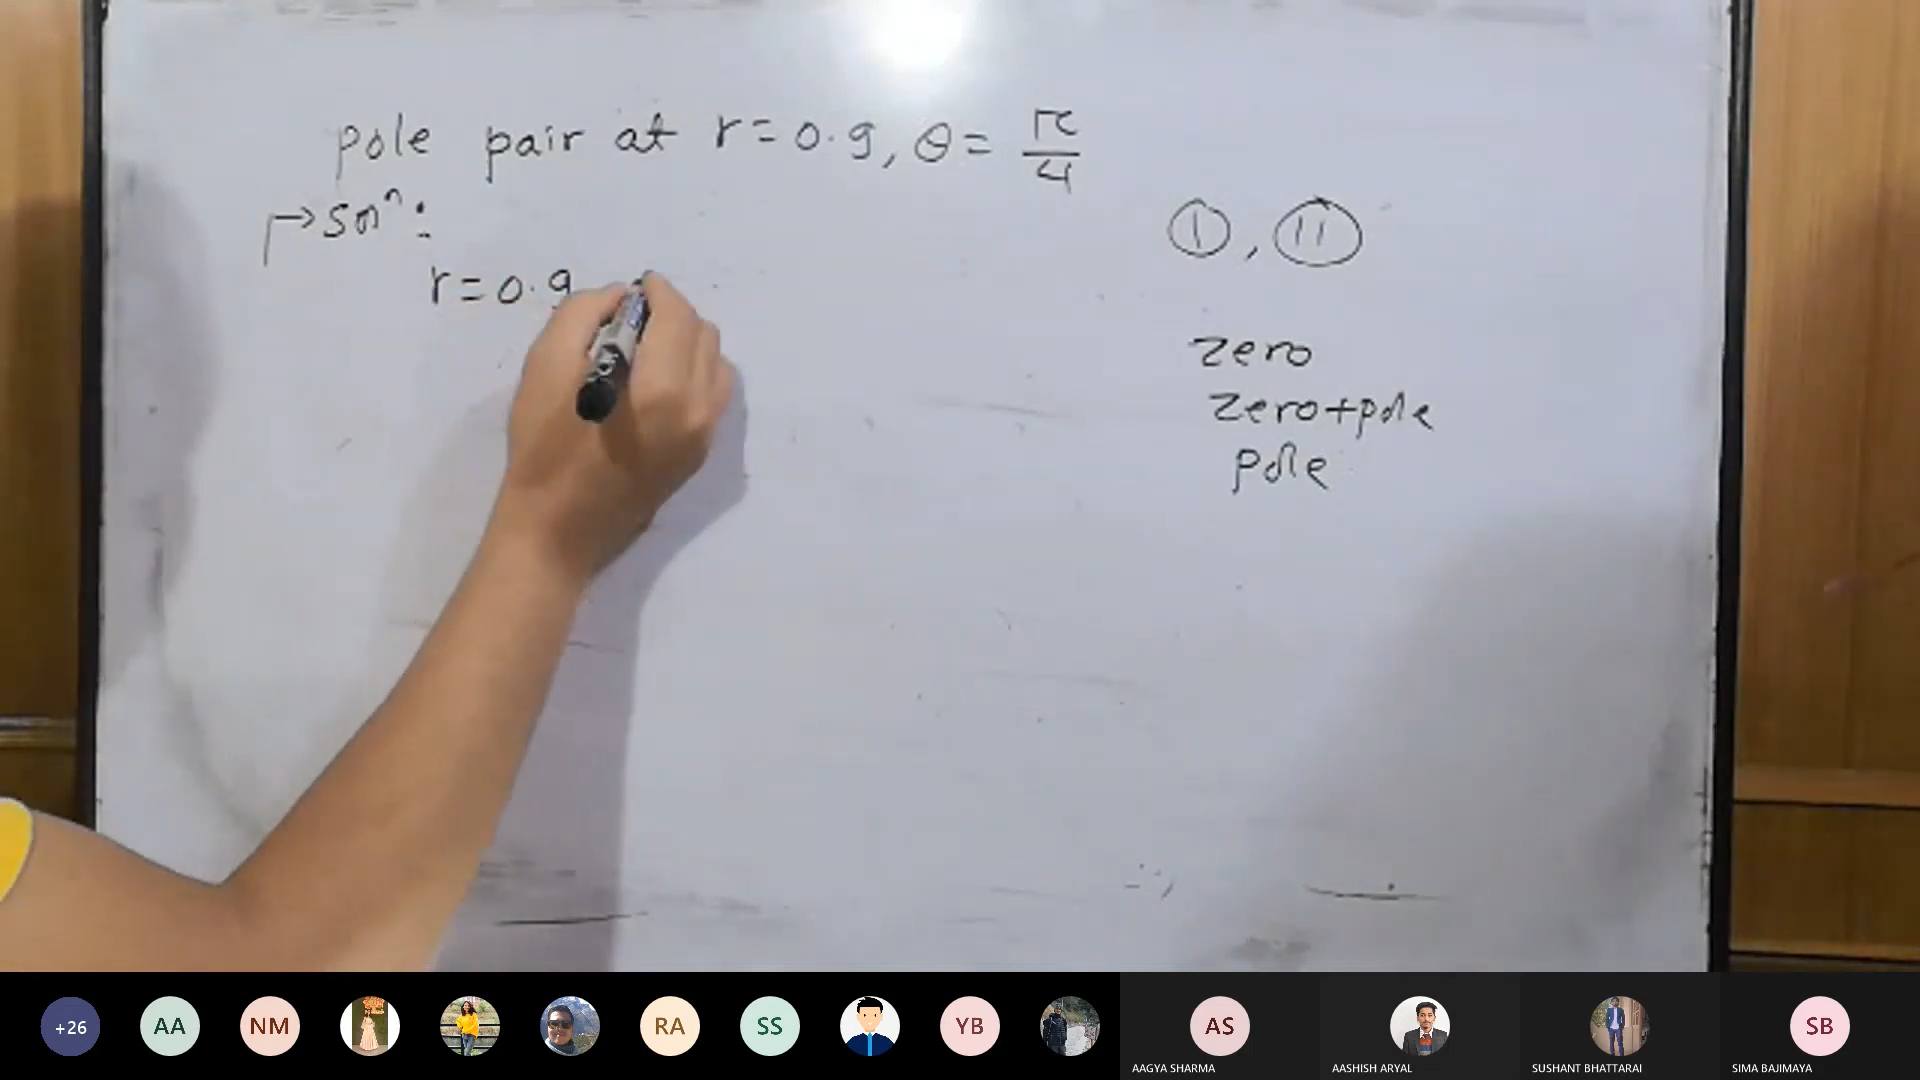 pole pair at r=0.9, θ= π/4
→ solⁿ:
r=0.9
I, II
zero
zero+pole
pole
+26
AA
NM
RA
SS
YB
AS
SB
AAGYA SHARMA
AASHISH ARYAL
SUSHANT BHATTARAI
SIMA BAJIMAYA